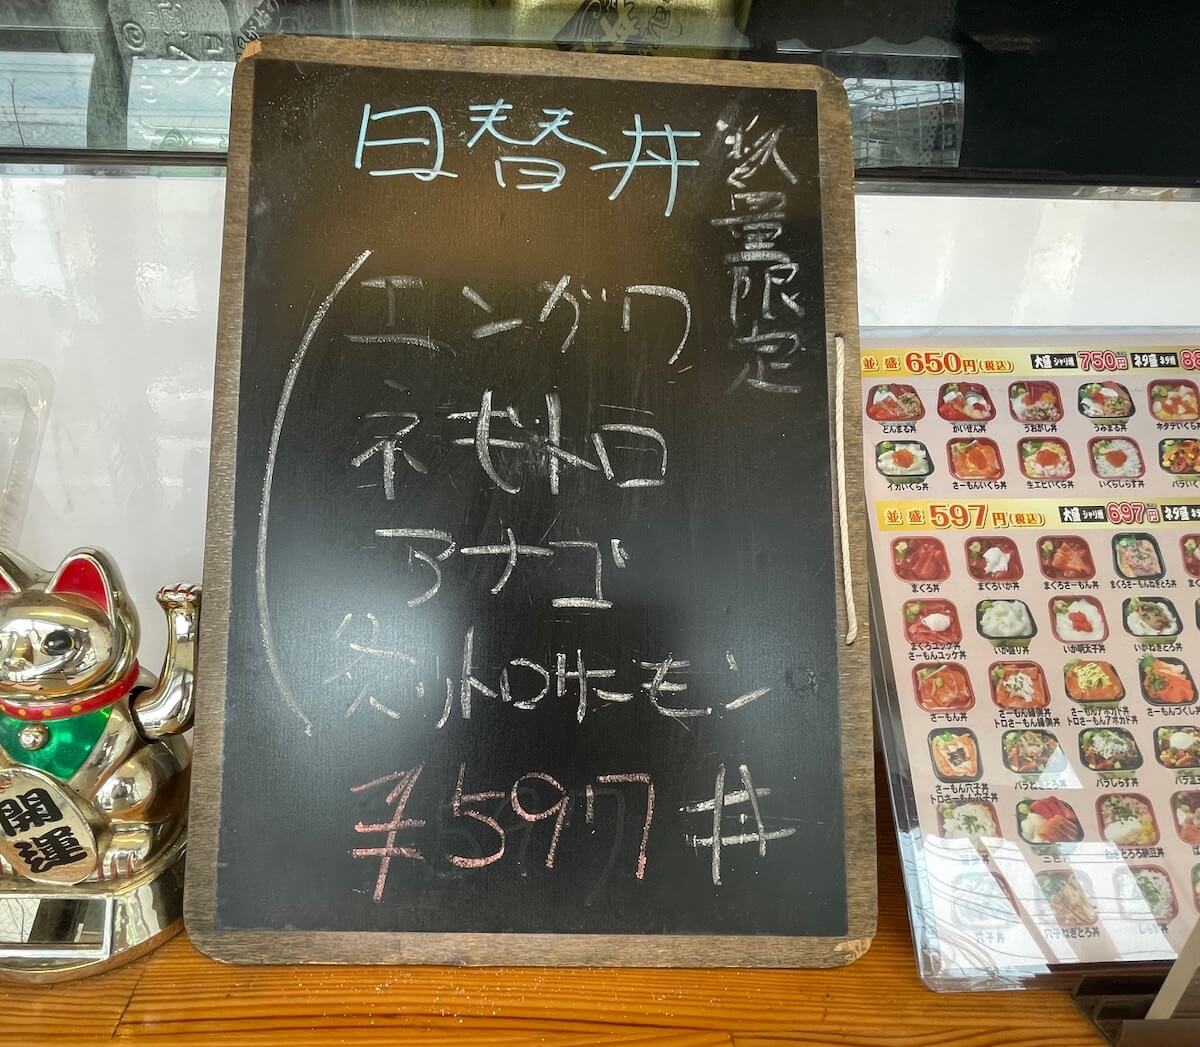 日替丼
数量限定
エンガワ
ネギトロ
アナゴ
炙りトロサーモン
¥597
並盛 650円(税込) 大盛 シャリ増 750円 ネタ盛 ネタ増
とんまる丼 かいせん丼 うおがし丼 うみまる丼 ホタテいくら丼
イカいくら丼 さーもんいくら丼 生エビいくら丼 いくらしらす丼
並盛 597円(税込) 大盛 シャリ増 697円 ネタ盛
まぐろ丼 まぐろいか丼 まぐろさーもん丼 まぐろさーもんねぎとろ丼
まぐろユッケ丼 いか盛り丼 いか明太子丼 いかねぎとろ丼
さーもんユッケ丼
さーもん丼 さーもん縁側丼 さーもんアボカド丼 さーもんづくし丼
トロさーもん縁側丼 トロさーもんアボカド丼
さーもん穴子丼 バラねぎとろ丼 バラしらす丼
トロさーもん穴子丼
三色丼 ねぎとろろ納豆丼
穴子丼 穴子ねぎとろ丼 しらす丼
開運